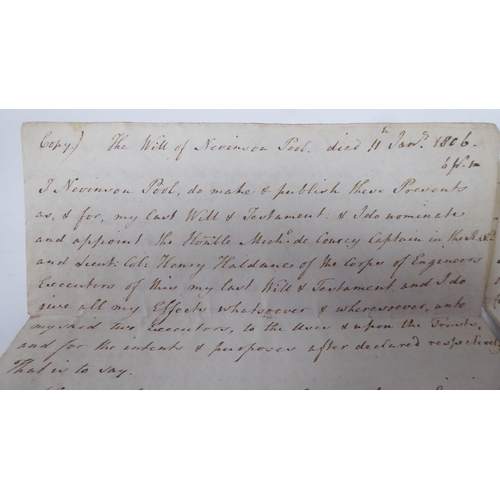 Copy) The Will of Nevinson Pool. died 11th Jany. 1806.
I Nevinson Pool, do make & publish these Presents
as, & for, my last Will & Testament: & I do nominate
and appoint the Honble Michl. de Courcy Captain in the R.Ny.
and Lieut: Col: Henry Haldane of the Corps of Engineers
Executors of this my last Will & Testament and I do
give all my Effects whatsoever & wheresoever, unto
my said two Executors, to the Uses & upon the Trusts,
and for the intents & purposes after declared respectively
That is to say.